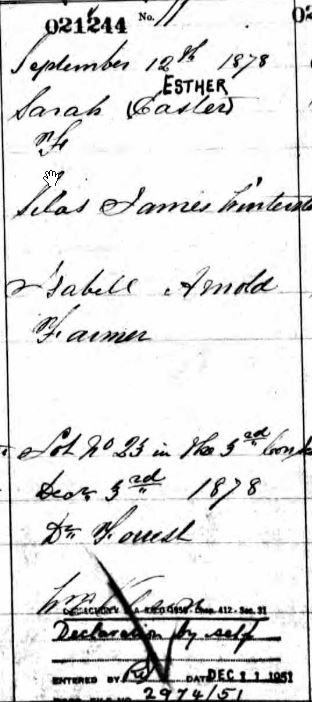 021244 No. 11
September 12th 1878
ESTHER
Sarah (Easter)
F
Silas James
Isabell Arnold
Farmer
Lot No 23 in the 3rd
Decr 3rd 1878
Dr Forrest
Wm
R.S.O. 1950 - Chap. 412 - Sec. 31
Declaration by self
ENTERED BY DATE DEC 11 1951
2974/51